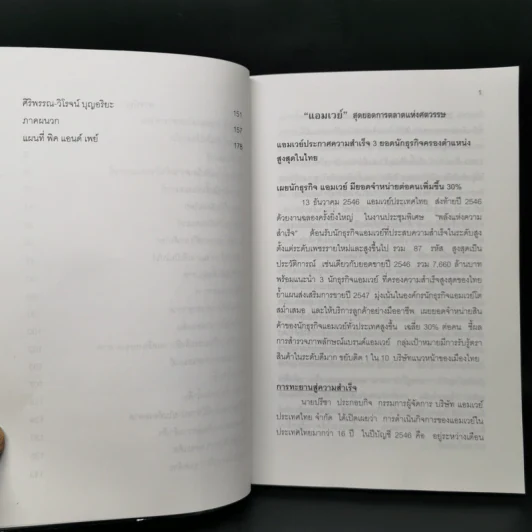 ศิริพรรณ-วิโรจน์ บุญอริยะ 151
ภาคผนวก 157
แผนที่ พิค แอนด์ เพย์ 178
"แอมเวย์" สุดยอดการตลาดแห่งศตวรรษ
แอมเวย์ประกาศความสำเร็จ 3 ยอดนักธุรกิจครองตำแหน่ง
สูงสุดในไทย
เผยนักธุรกิจ แอมเวย์ มียอดจำหน่ายต่อคนเพิ่มขึ้น 30%
13 ธันวาคม 2546 แอมเวย์ประเทศไทย ส่งท้ายปี 2546
ด้วยงานฉลองครั้งยิ่งใหญ่ ในงานประชุมพิเศษ "พลังแห่งความ
สำเร็จ" ต้อนรับนักธุรกิจแอมเวย์ที่ประสบความสำเร็จในระดับสูง
ตั้งแต่ระดับเพชรรายใหม่และสูงขึ้นไป รวม 87 รหัส สูงสุดเป็น
ประวัติการณ์ เช่นเดียวกับยอดขายปี 2546 รวม 7,660 ล้านบาท
พร้อมแนะนำ 3 นักธุรกิจแอมเวย์ ที่ครองความสำเร็จสูงสุดของไทย
ย้ำแผนส่งเสริมการขายปี 2547 มุ่งเน้นในองค์กรนักธุรกิจแอมเวย์โต
สม่ำเสมอ และให้บริการลูกค้าอย่างมืออาชีพ เผยยอดจำหน่ายสิน
ค้าของนักธุรกิจแอมเวย์ทั่วประเทศสูงขึ้น เฉลี่ย 30% ต่อคน ชี้ผล
การสำรวจภาพลักษณ์แบรนด์แอมเวย์ กลุ่มเป้าหมายมีการรับรู้ตรา
สินค้าในระดับดีมาก ขยับติด 1 ใน 10 บริษัทแนวหน้าของเมืองไทย
การทะยานสู่ความสำเร็จ
นายปรีชา ประกอบกิจ กรรมการผู้จัดการ บริษัท แอมเวย์
ประเทศไทย จำกัด ได้เปิดเผยว่า การดำเนินกิจการของแอมเวย์ใน
ประเทศไทยมากว่า 16 ปี ในปีบัญชี 2546 คือ อยู่ระหว่างเดือน